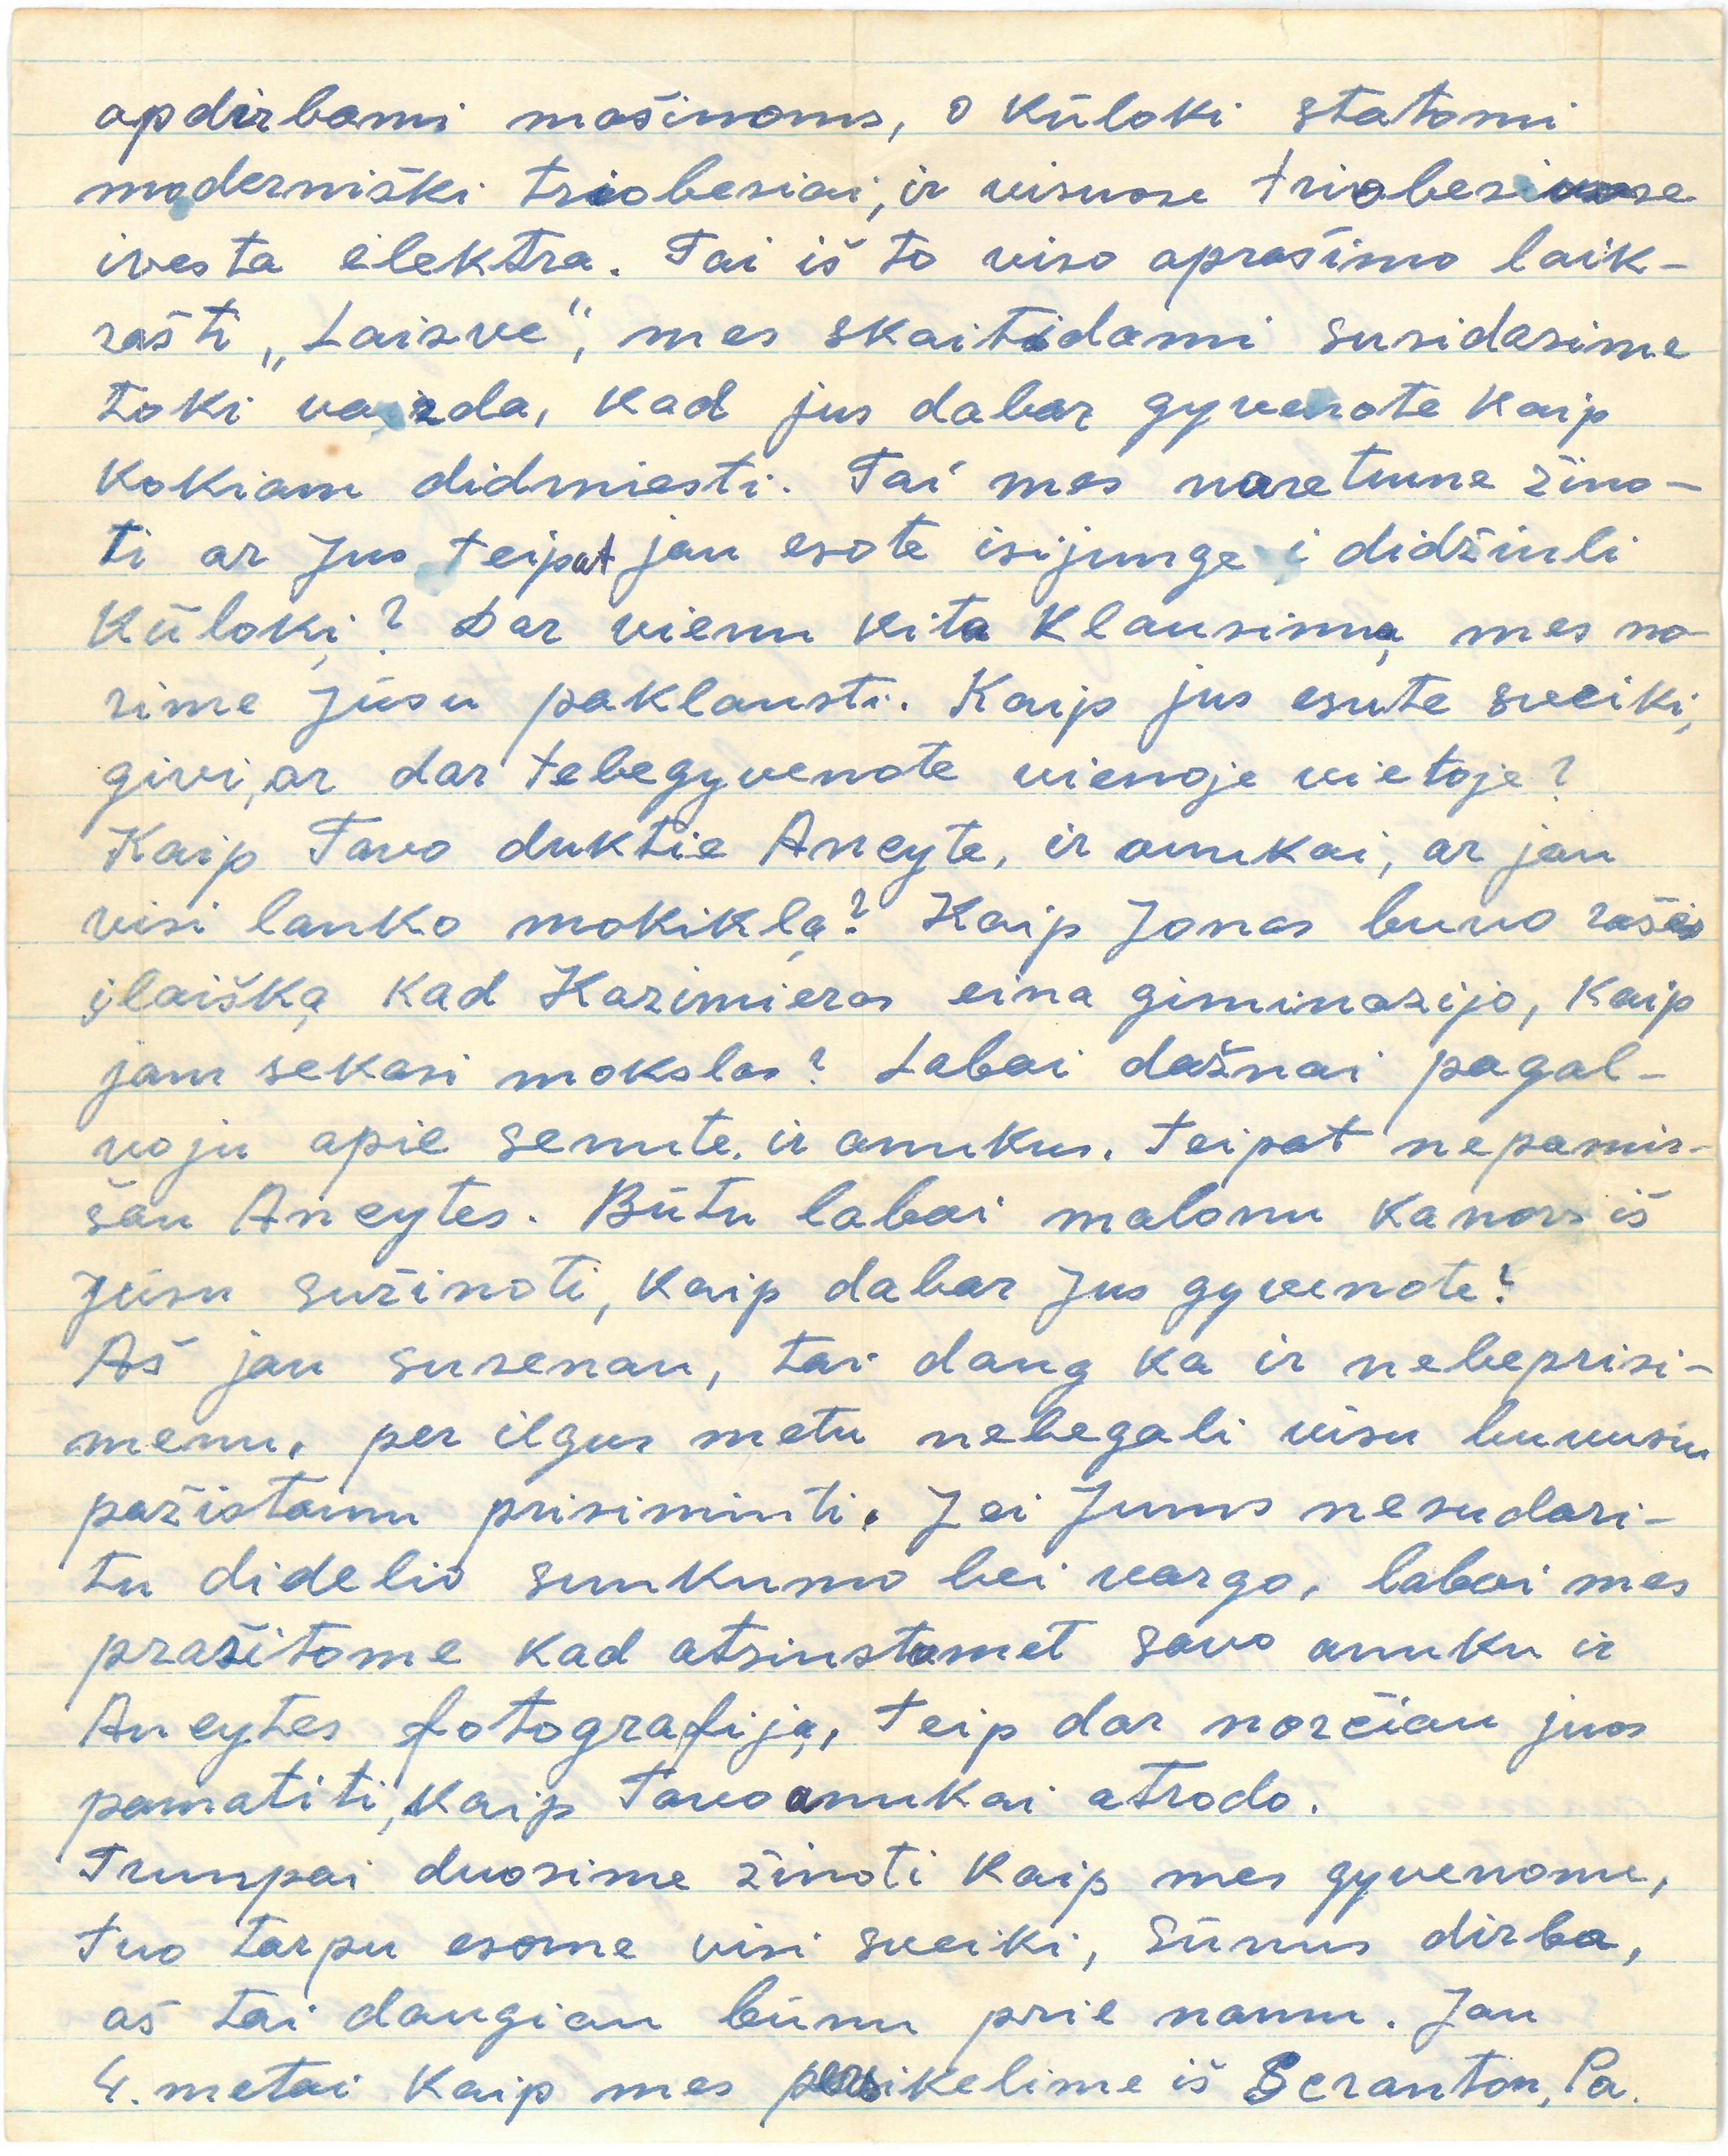 apdirbami mašinoms, o kūloki statomi
moderniški triobesiai, ir visuose triobesiuose
ivesta elektra. Tai iš to viso aprašimo laik-
rašti „Laisve“, mes skaitidami susidasime
toki vaizda, kad jus dabar gyvenate kaip
kokiam didmiesti. Tai mes noretume žino-
ti ar Jus teipat jau esate isijunge i didžiuli
Kūloki̧? Dar vienu kita Klausimą mes no-
rime Jūsu paklausti. Kaip jus esate sveiki,
givi, ar dar tebegyvenate vienoje vietoje?
Kaip Tavo duktie Ancyte, ir anukai, ar jau
visi lanko mokiklą? Kaip Jonas buvo rašęs
įlaišką kad Kazimieras eina giminazijo, Kaip
jam sekasi mokslas? Labai dažnai pagal-
voju apie senute. ir anukus. Teipat nepamir-
šau Ancytes. Būtu labai malonu ka nors iš
Jūsu sužinoti, kaip dabar Jus gyvenate?
Aš jau susenau, tai daug ka ir nebeprisi-
menu, per ilgus metu nebegali visu buvusiu
pažistamu prisiminti. Jei Jums nesudari-
tu didelio sunkumo bei vargo, labai mes
prašitome kad atsiustumet savo anuku ir
Ancytes fotografiją, Teip dar norčiau juos
pamatiti, kaip Tavo anukai atrodo.
Trumpai duosime žinoti kaip mes gyvenome,
tuo tarpu esame visi sveiki, Sūnus dirba,
aš tai daugiau būnu prie namu. Jau
4. metai kaip mes persikelime iš Scranton, Pa.